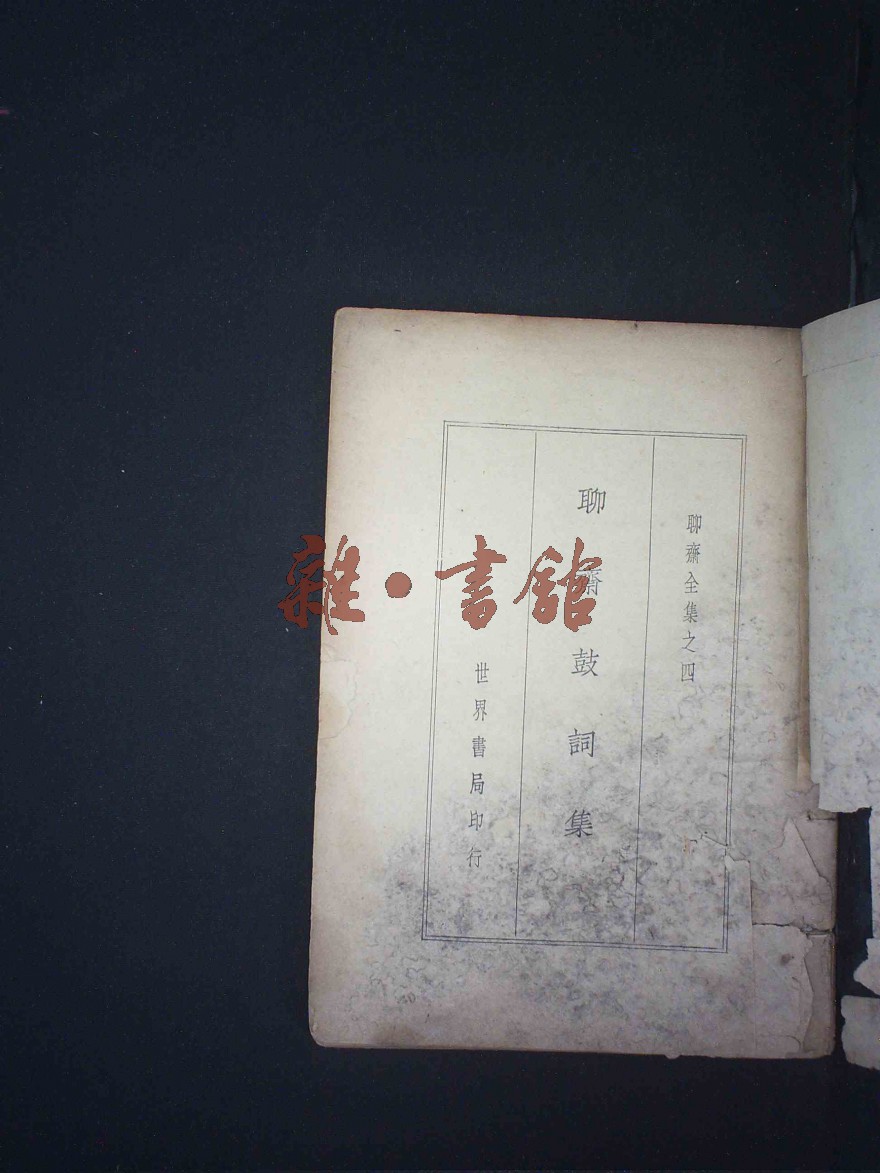 聊齋全集之四
聊齋鼓詞集
世界書局印行
雜·書館